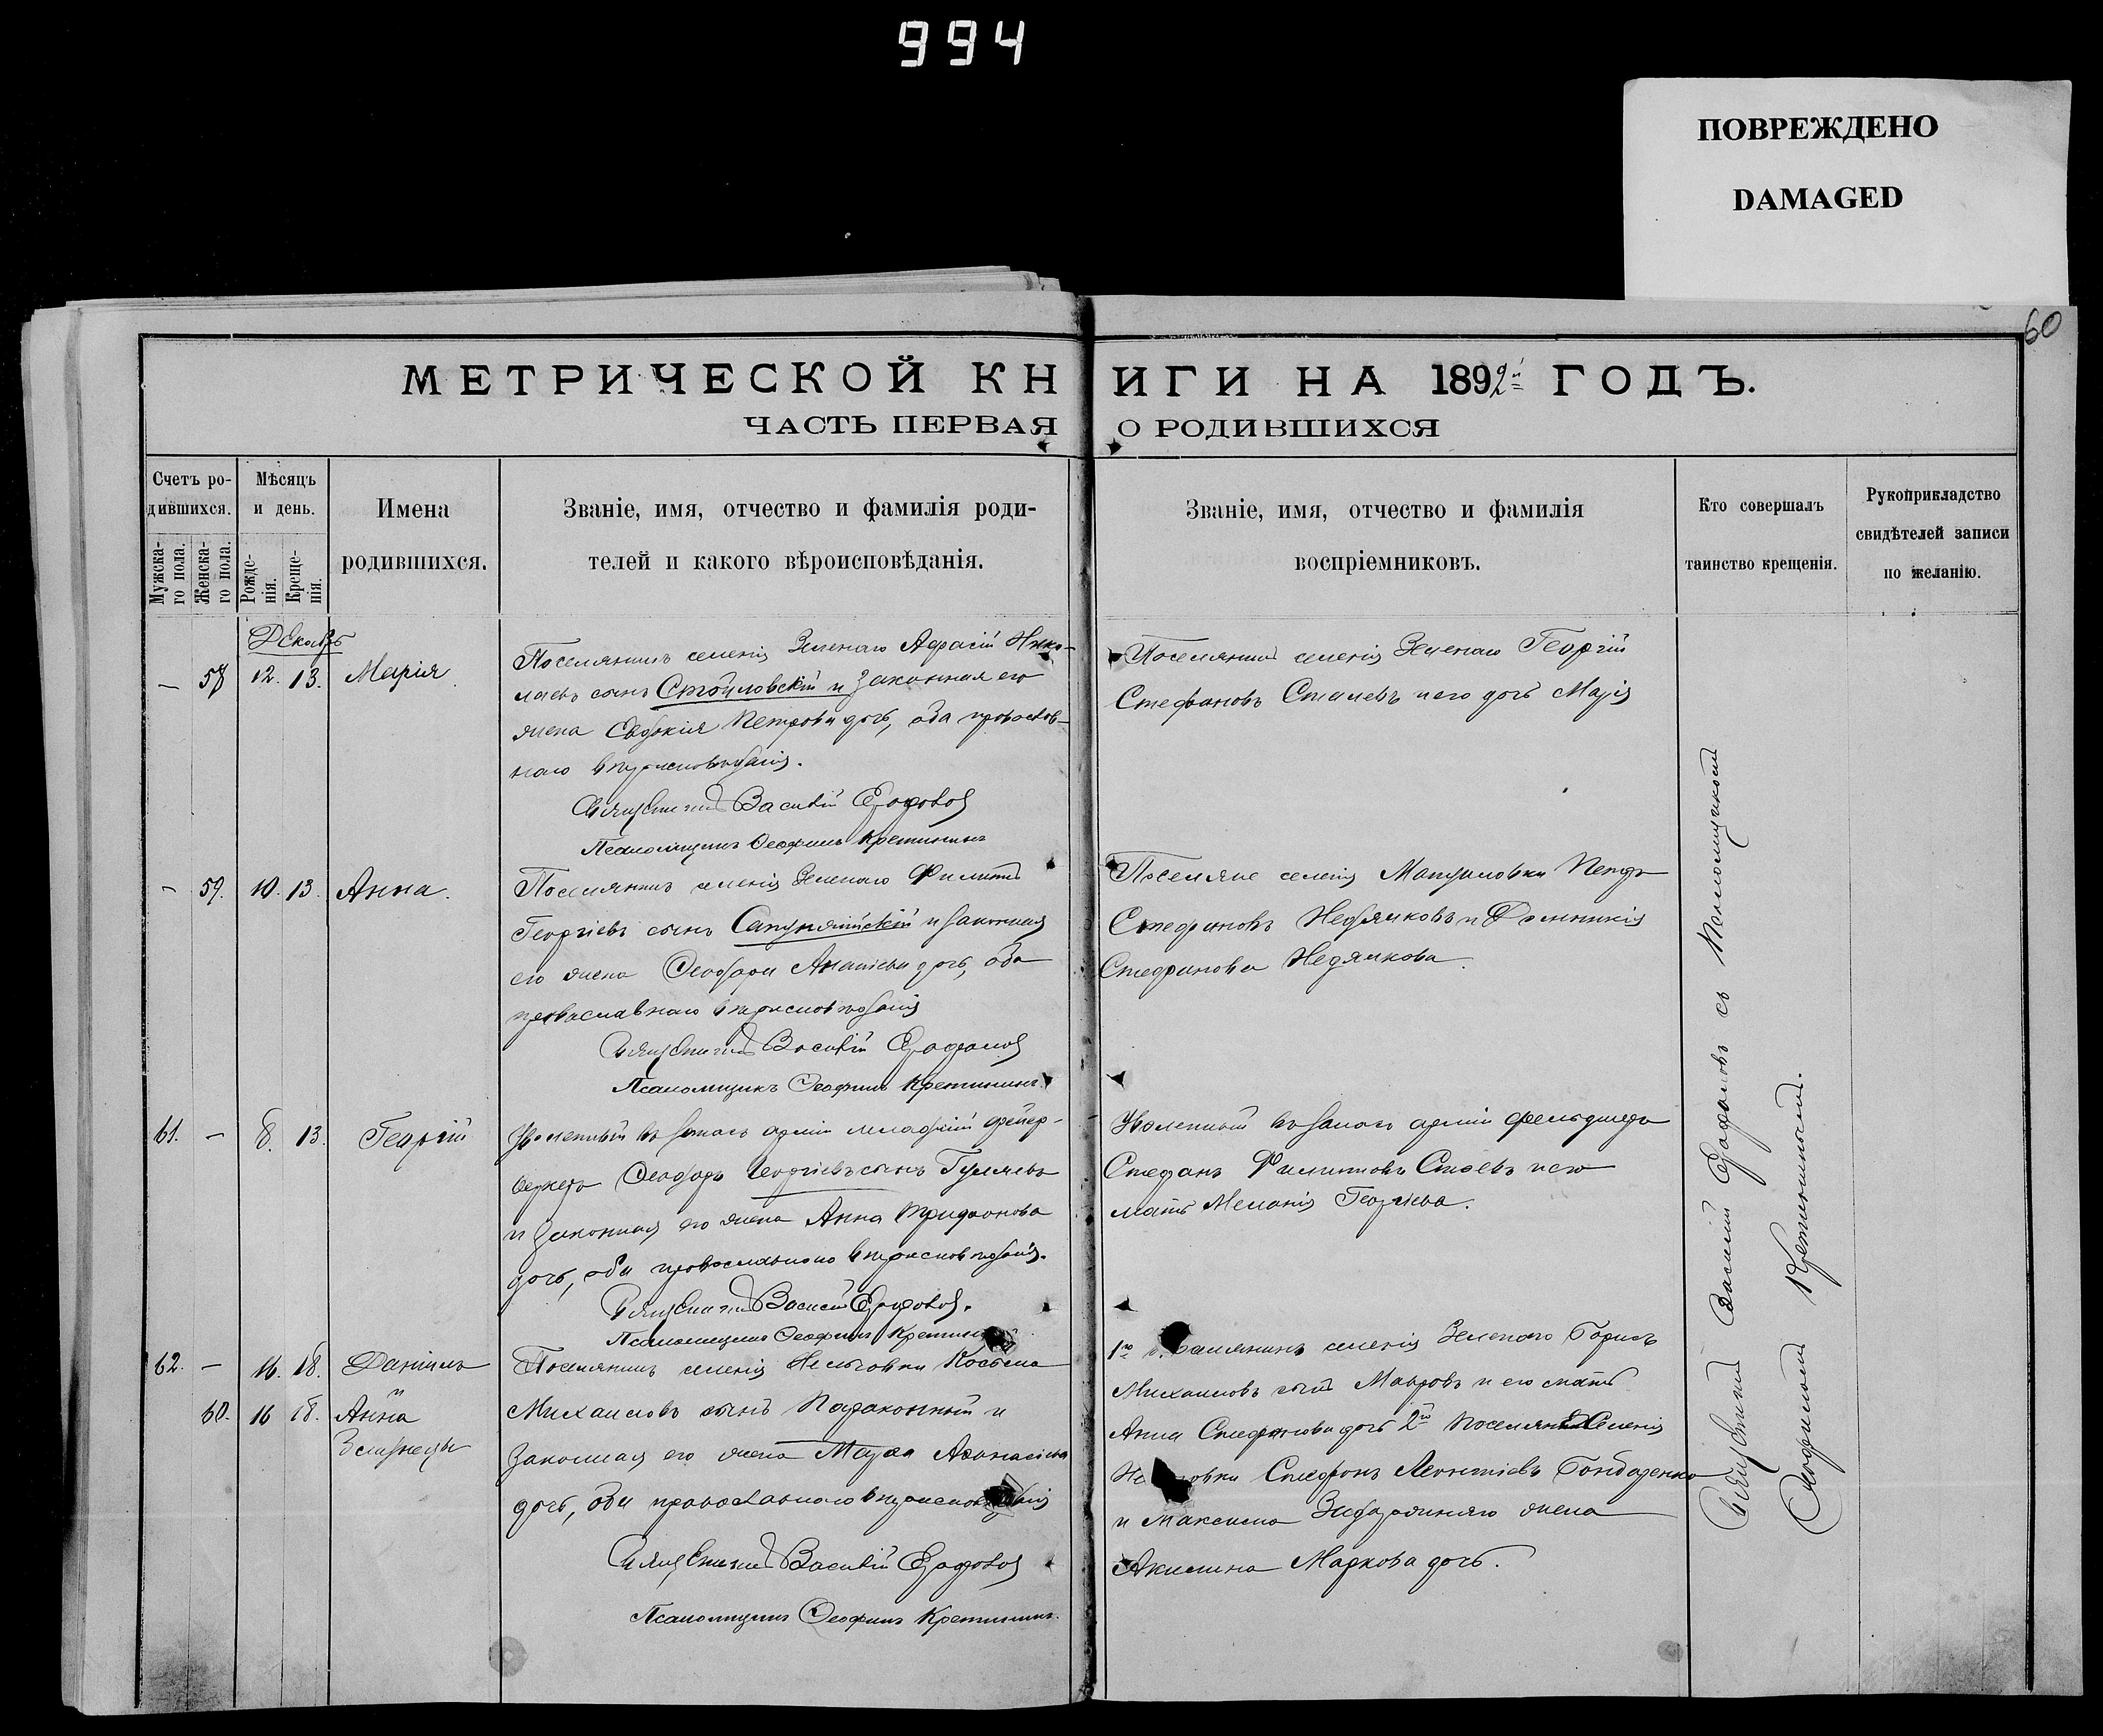 994
ПОВРЕЖДЕНО
DAMAGED
60
МЕТРИЧЕСКОЙ КНИГИ НА 1892й ГОДЪ.
ЧАСТЬ ПЕРВАЯ О РОДИВШИХСЯ
Счетъ ро-
дившихся.
Мужска-
го пола.
Женска-
го пола.
Мѣсяцъ
и день.
Рожде-
нія.
Креще-
нія.
Имена
родившихся.
Званіе, имя, отчество и фамилія роди-
телей и какого вѣроисповѣданія.
Званіе, имя, отчество и фамилія
воспріемниковъ.
Кто совершалъ
таинство крещенія.
Рукоприкладство
свидѣтелей записи
по желанію.
Декабрь
— 58 12. 13. Марія
Поселянинъ селенія Зеленаго Нико-
лаевъ сынъ Стоиловскій и законная его
жена Евдокія Петрова дочь, оба православ-
наго вѣроисповѣданія.
Священникъ Василій Ерофалов
Псаломщикъ Ѳеофилъ Кретининъ
Поселянинъ селенія Зеленаго Георгій
Стефановъ Сталевъ и его дочь Марія
— 59. 10. 13. Анна.
Поселянинъ селенія Зеленаго Филиппъ
Георгіевъ сынъ и законная
его жена Ѳеодора дочь, оба
православнаго вѣроисповѣданія
Священникъ Василій Ерофалов
Псаломщикъ Ѳеофилъ Кретининъ
Поселяне селенія Мануиловки Петръ
Стефановъ Недялковъ и Домникія
Стефанова Недялкова.
61. — 8. 13. Георгій
Уволенный въ запасъ арміи младшій фейер-
веркеръ Ѳеодоръ Георгіевъ сынъ Гуляевъ
и законная его жена Анна Трифонова
дочь, оба православнаго вѣроисповѣданія.
Священникъ Василій Ерофалов.
Псаломщикъ Ѳеофилъ
Уволенный въ запасъ арміи фельдшеръ
Стефанъ Филипповъ Стоевъ и его
мать Меланія Георгіева.
62. — 16. 18. Даніилъ
60. 16 18. Анна
и
близнецы
Поселянинъ селенія Нельговки Косьма
Михаиловъ сынъ и
законная его жена Марѳа Аѳанасіева
дочь, оба православнаго
Священникъ Василій Ерофалов
Псаломщикъ Ѳеофилъ Кретининъ.
1е селенія Зеленаго Борисъ
Михаиловъ сынъ Мавровъ и его мать
Анна Стефанова дочь 2е Поселяне селенія
Стефанъ Леонтіевъ Бондаренко
и Максима жена
Акилина Маркова дочь.
Священникъ Василій Ерофаловъ съ Псаломщикомъ
Ѳеофиломъ Кретининымъ.